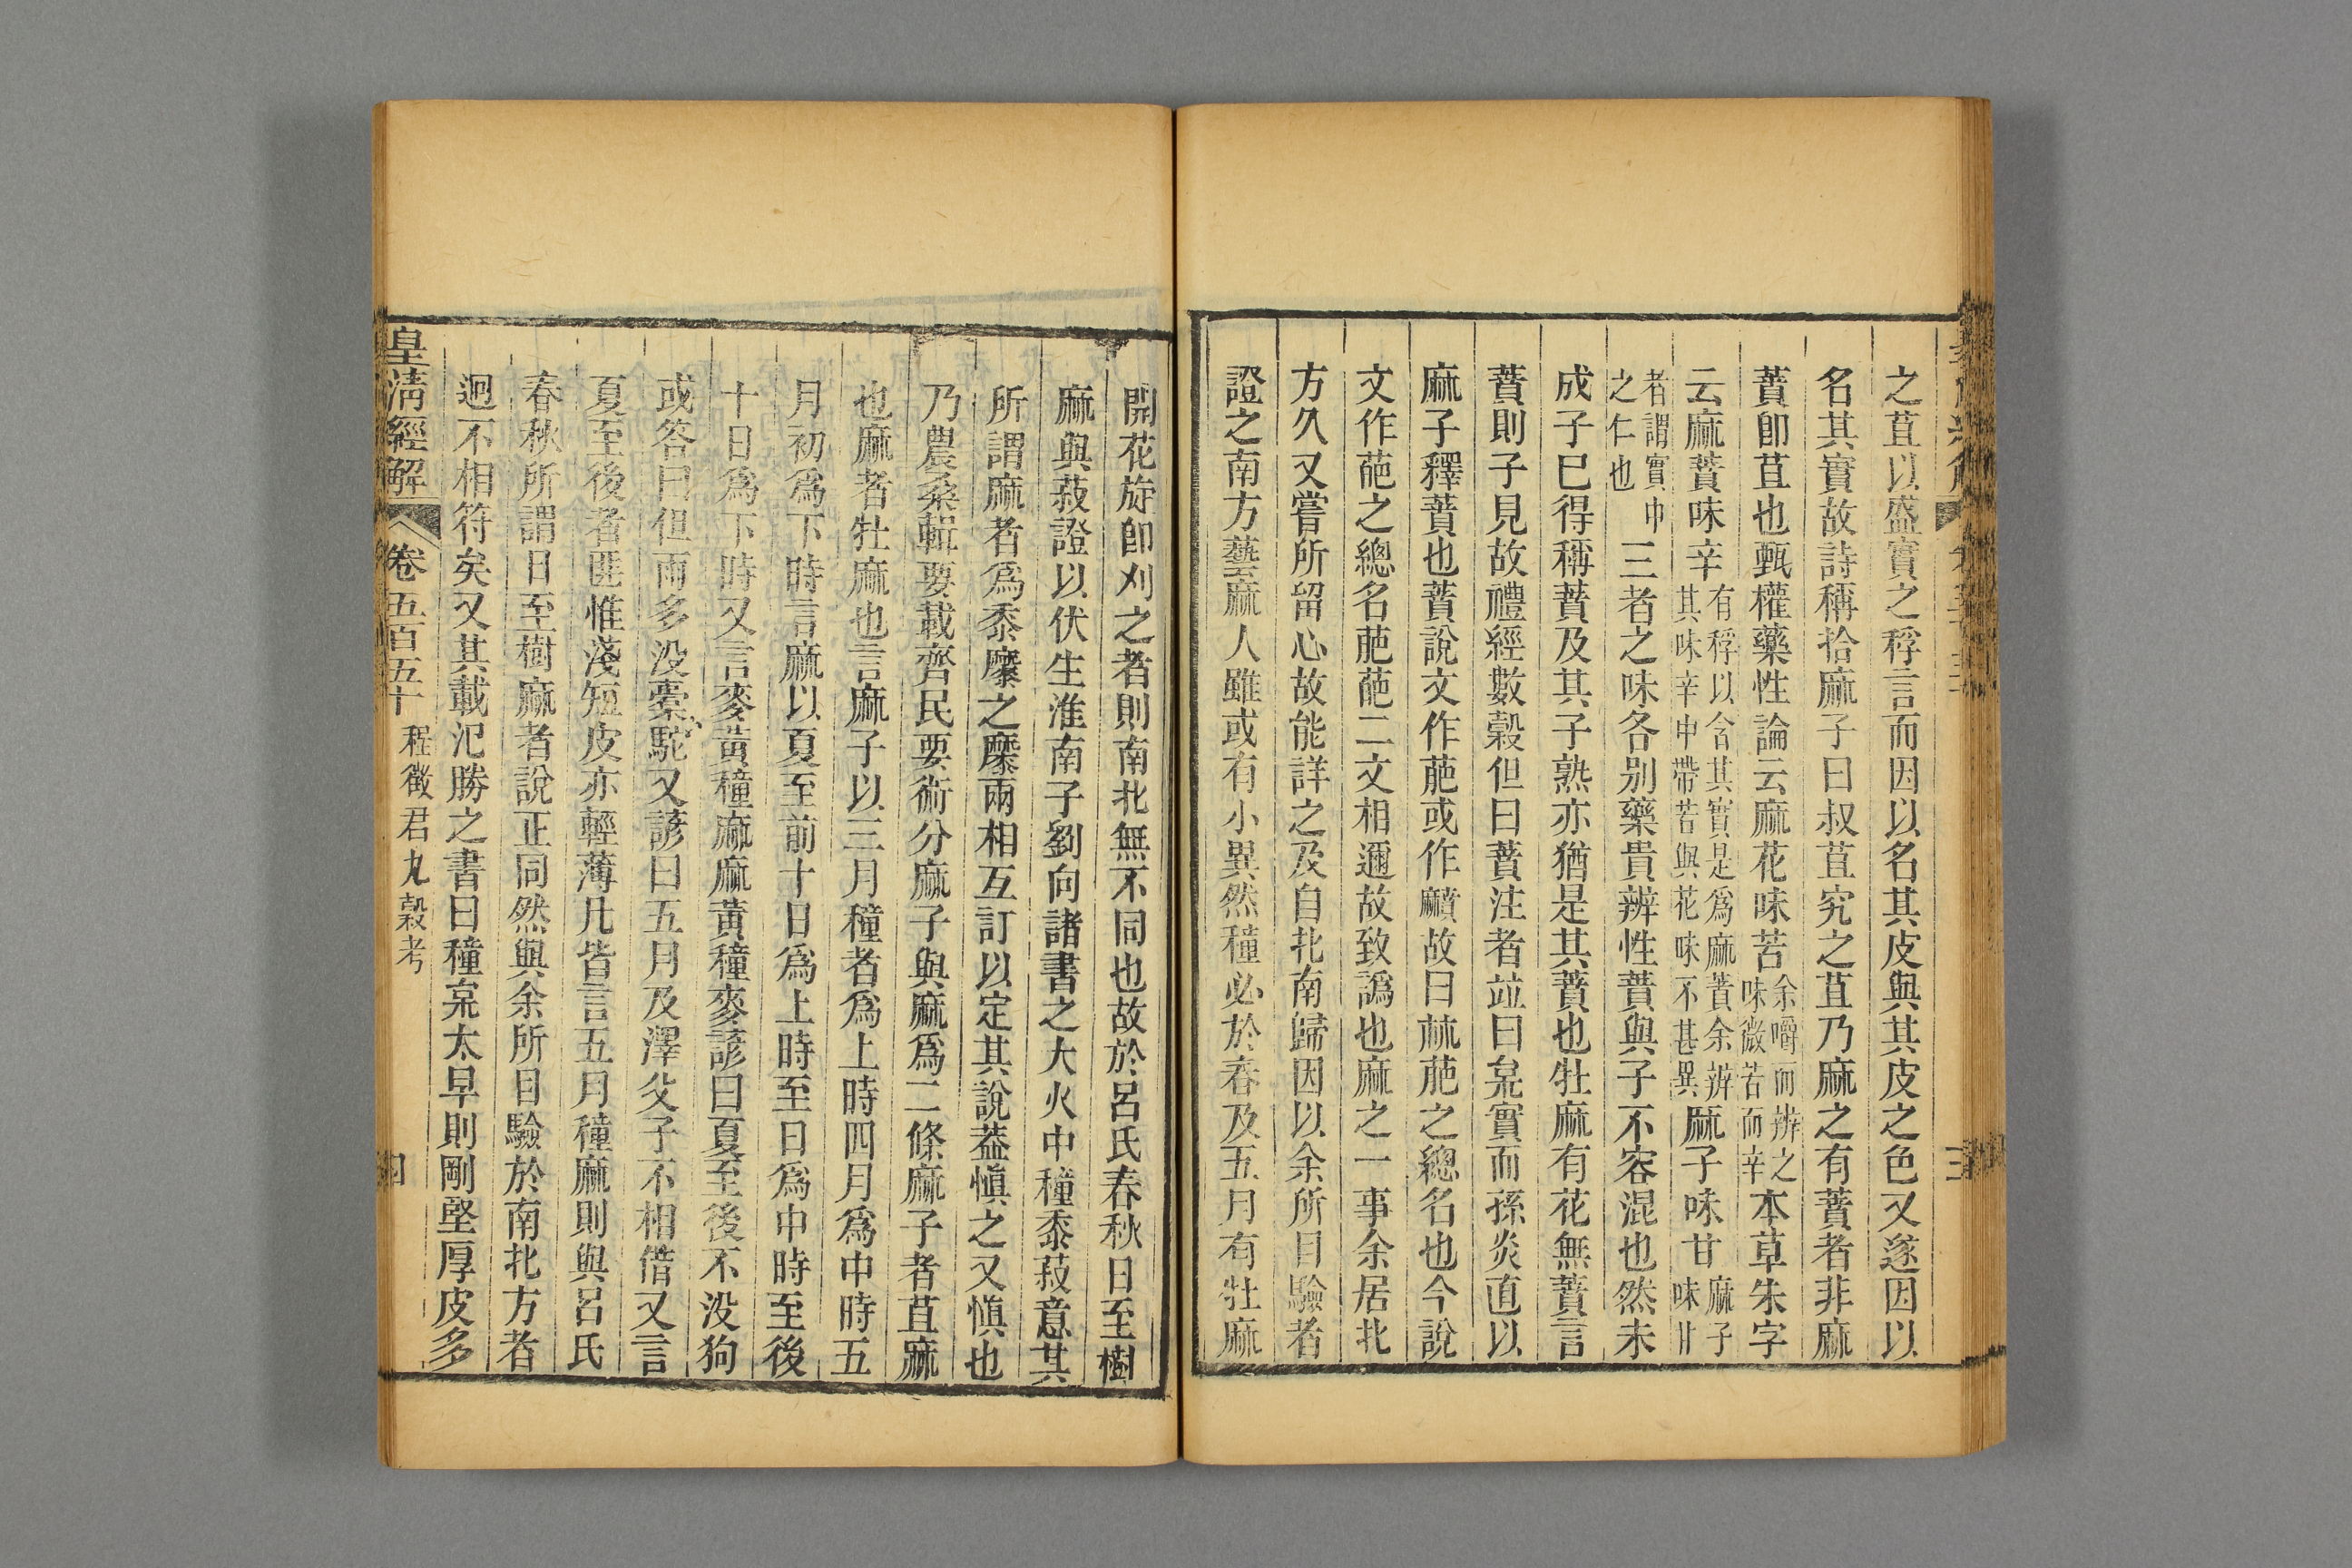 之苴以盛實之稃言而因以名其皮與其皮之色又遂因以
名其實故詩稱拾麻子曰叔苴究之苴乃麻之有蕡者非麻
蕡卽苴也甄權藥性論云麻花味苦余嚼而辨之味微苦而辛本草朱字
云麻蕡味辛有稃以含其實是爲麻蕡余辨其味辛中帶苦與花味不甚異麻子味甘麻子味甘
者謂實中之仁也三者之味各别藥貴辨性蕡與子不容混也然未
成子已得稱蕡及其子熟亦猶是其蕡也牡麻有花無蕡言
蕡則子見故禮經數穀但曰蕡注者竝曰枲實而孫炎直以
麻子釋蕡也蕡說文作萉或作黂故曰𣏟萉之總名也今說
文作葩之總名萉葩二文相邇故致譌也麻之一事余居北
方久又嘗所留心故能詳之及自北南歸因以余所目驗者
證之南方藝麻人雖或有小異然種必於春及五月有牡麻
開花旋卽刈之者則南北無不同也故於呂氏春秋日至樹
麻與菽證以伏生淮南子劉向諸書之大火中穜黍菽意其
所謂麻者爲黍穈之穈兩相互訂以定其說葢愼之又愼也
乃農桑輯要載齊民要術分麻子與麻爲二條麻子者苴麻
也麻者牡麻也言麻子以三月穜者爲上時四月爲中時五
月初爲下時言麻以夏至前十日爲上時至日爲中時至後
十日爲下時又言麥黃穜麻麻黃穜麥諺曰夏至後不没狗
或答曰但雨多没橐駝又諺曰五月及澤父子不相借又言
夏至後者匪惟淺短皮亦輕薄凡皆言五月穜麻則與呂氏
春秋所謂日至樹麻者說正同然與余所目驗於南北方者
迥不相符矣又其載氾勝之書曰穜枲太早則剛堅厚皮多
皇淸經解 卷五百五十 程徵君九穀考 四